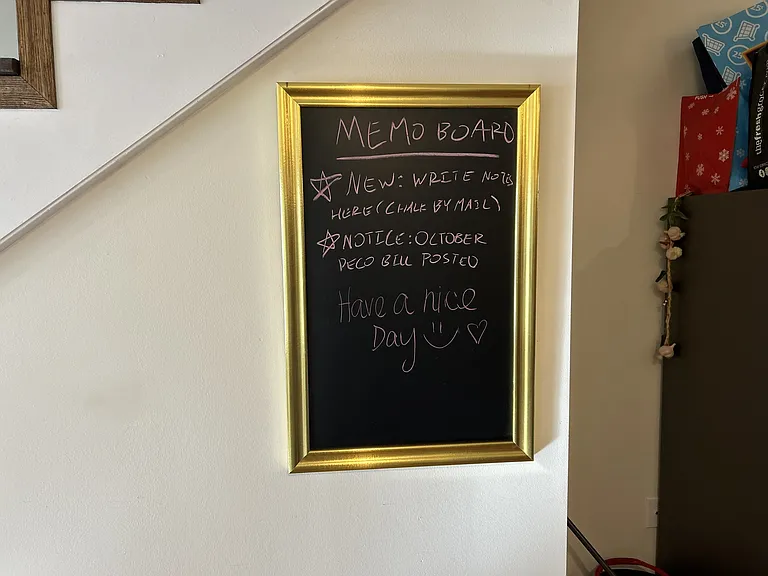 MEMO BOARD
☆ NEW: WRITE NOTES
HERE (CHALK BY MAIL)
☆ NOTICE: OCTOBER
PECO BILL POSTED
Have a nice
Day
25